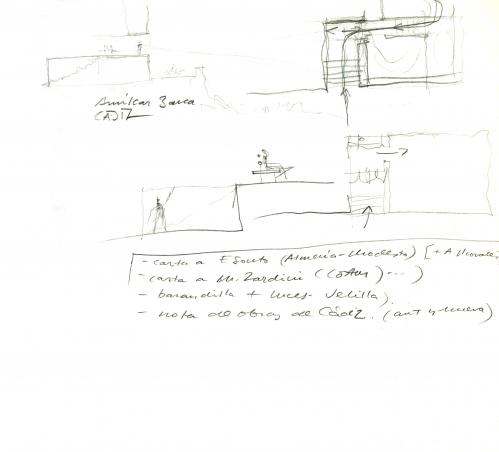 Amilcar Barca
CADIZ
- carta a E Souto (Almería-Modesto) [+ A
- carta a M. Zardini
- barandilla + luces Velilla)
- nota de obras de Cádiz. (ant y nueva)